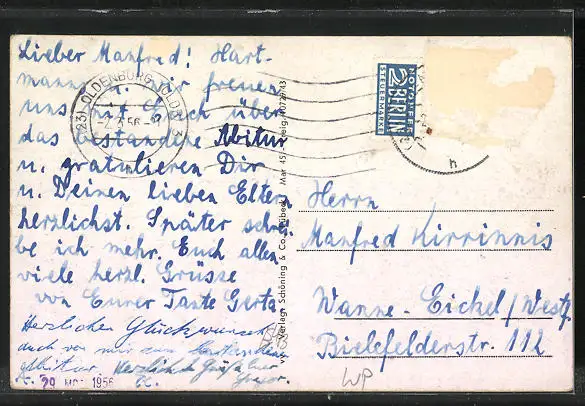 Lieber Manfred! Hart-
mann u. wir freuen
uns mit Euch über
das bestandene Abitur
u. gratulieren Dir
u. Deinen lieben Eltern
herzlichst. Später schrei-
be ich mehr. Euch allen
viele herzl. Grüsse
von Eurer Tante Gerta.
Herzlichen Glückwunsch
auch von mir zum bestandenen
Herzliche Grüße
29 1956
(23) OLDENBURG (OLDB)
NOTOPFER
2 BERLIN
STEUERMARKE
h
Verlag Schöning & Co., Lübeck
Herrn
Manfred Kirrinnis
Wanne-Eickel/Westf.
Bielefelderstr. 112
WP